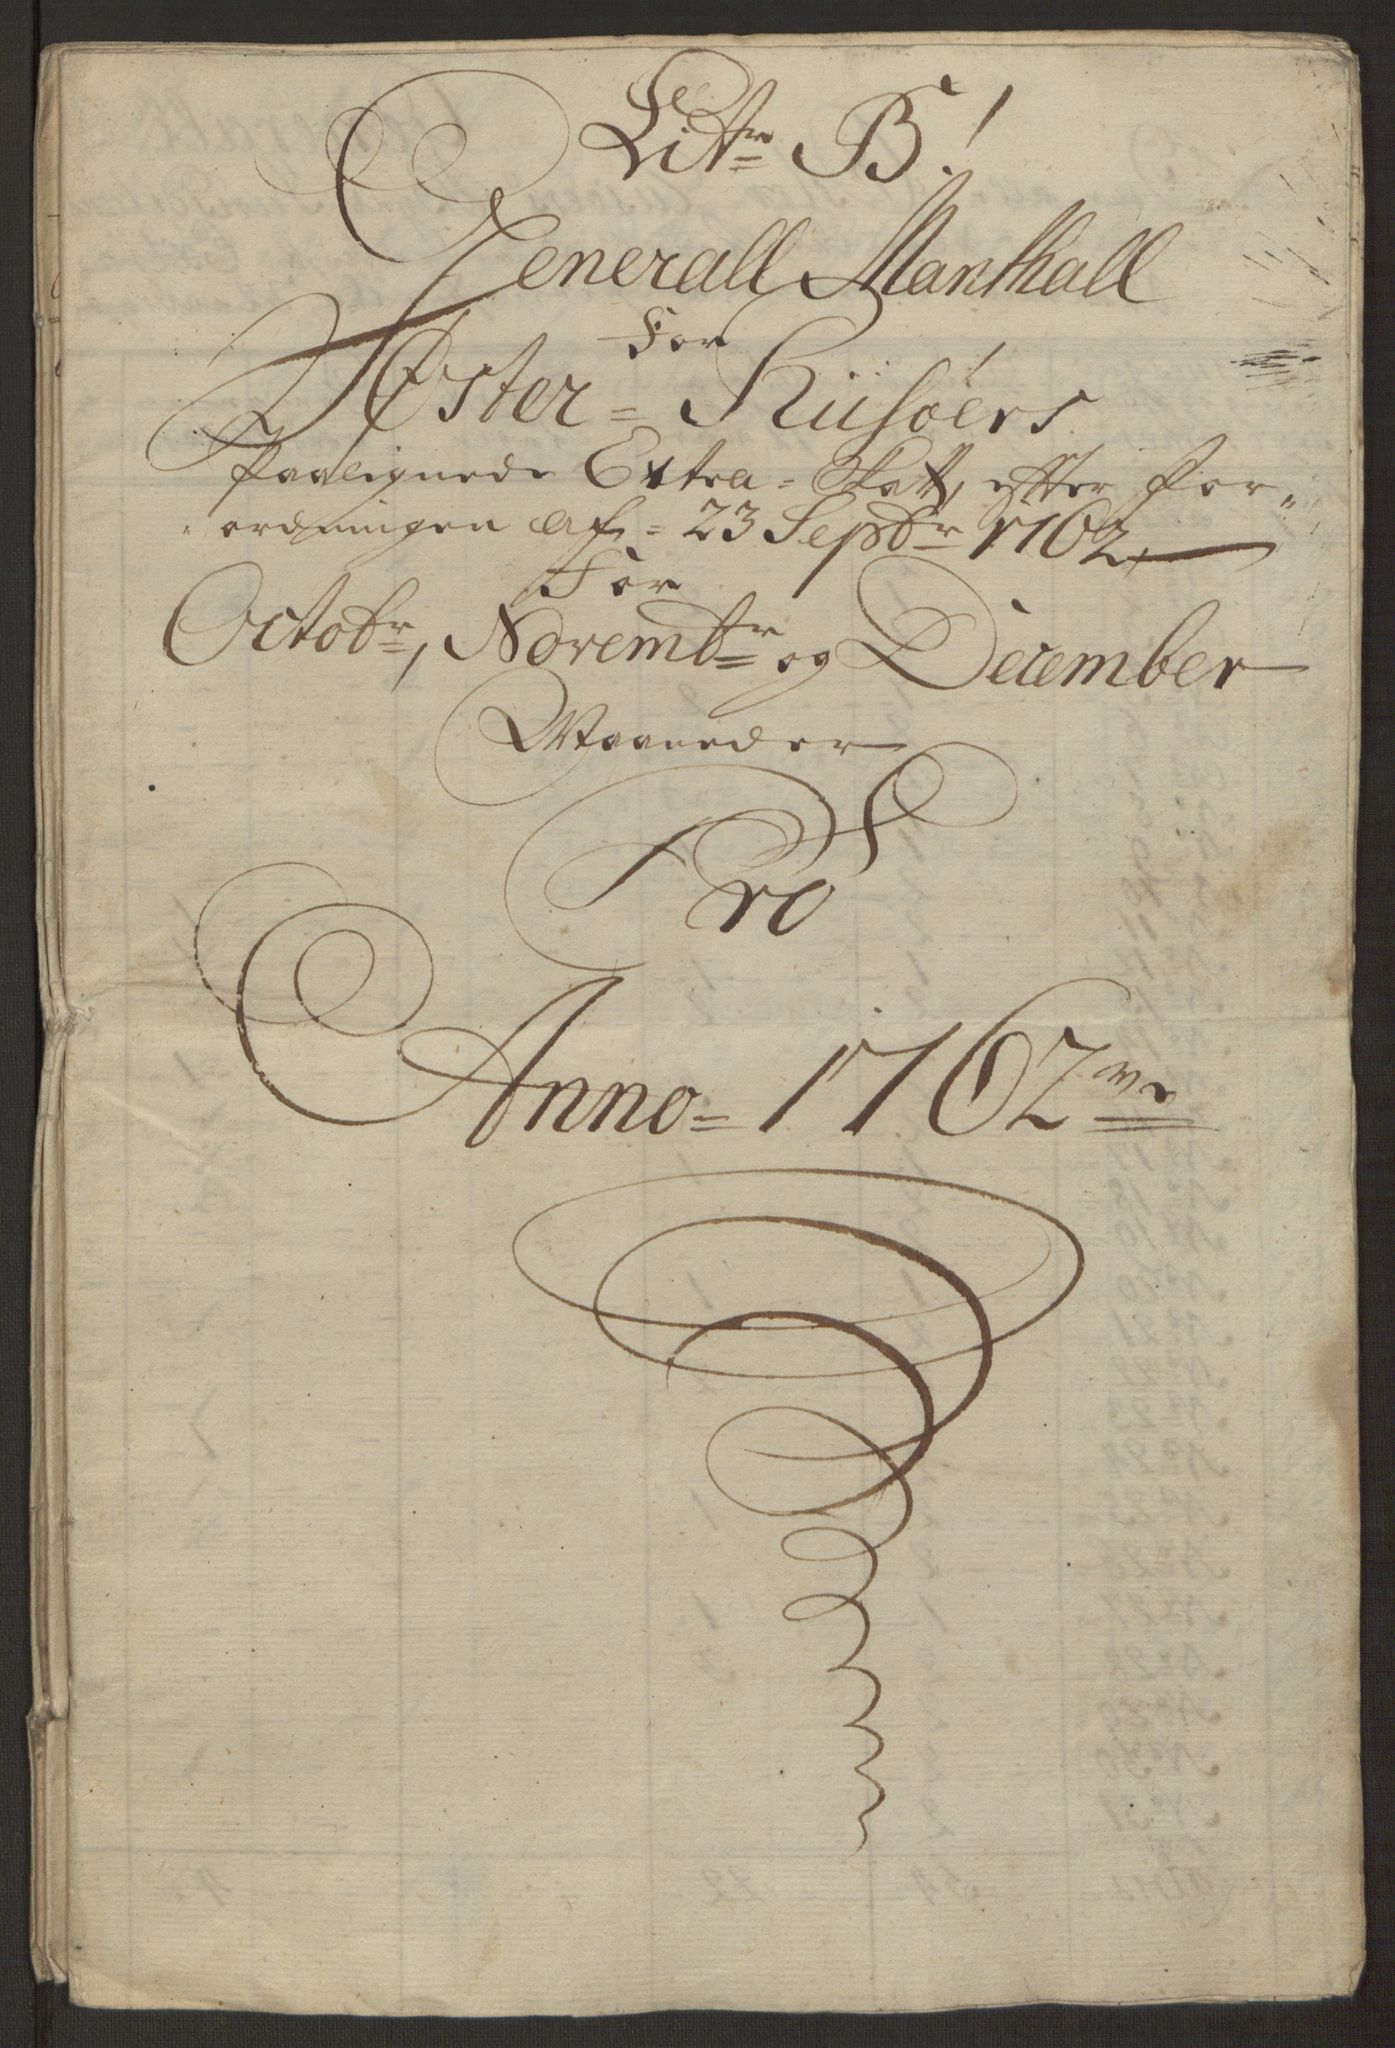 Litr B!
Generall Manthall
For
Øster = Riisøers
Paalignede Extra = Skatt, efter For„
„ordningen af = 23 Septbr 1762,
For
Octobr, Novembr og December
Maaneder
Pro
Anno = 1762